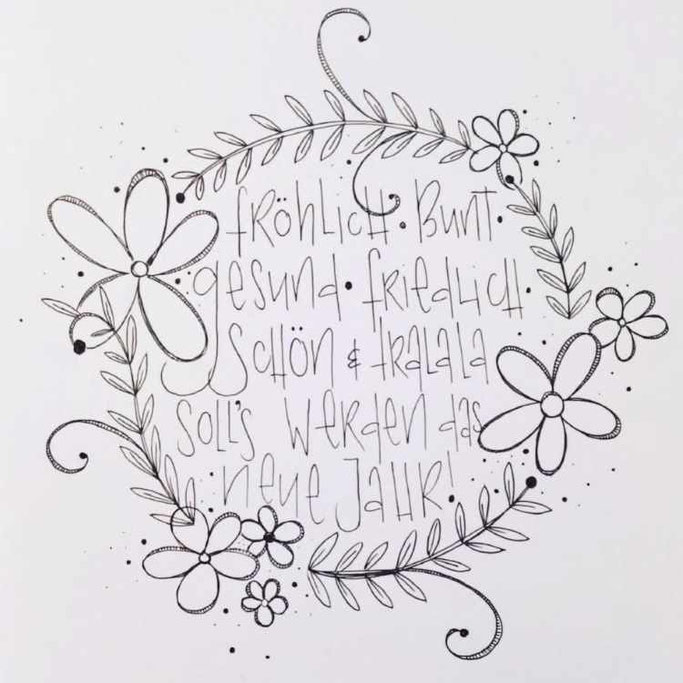 fRÖHLiCH • BUNT •
gesund • fRiedLiCH •
SCHÖN & tRALALA
SOLL's WeRden das
neue JAHR!